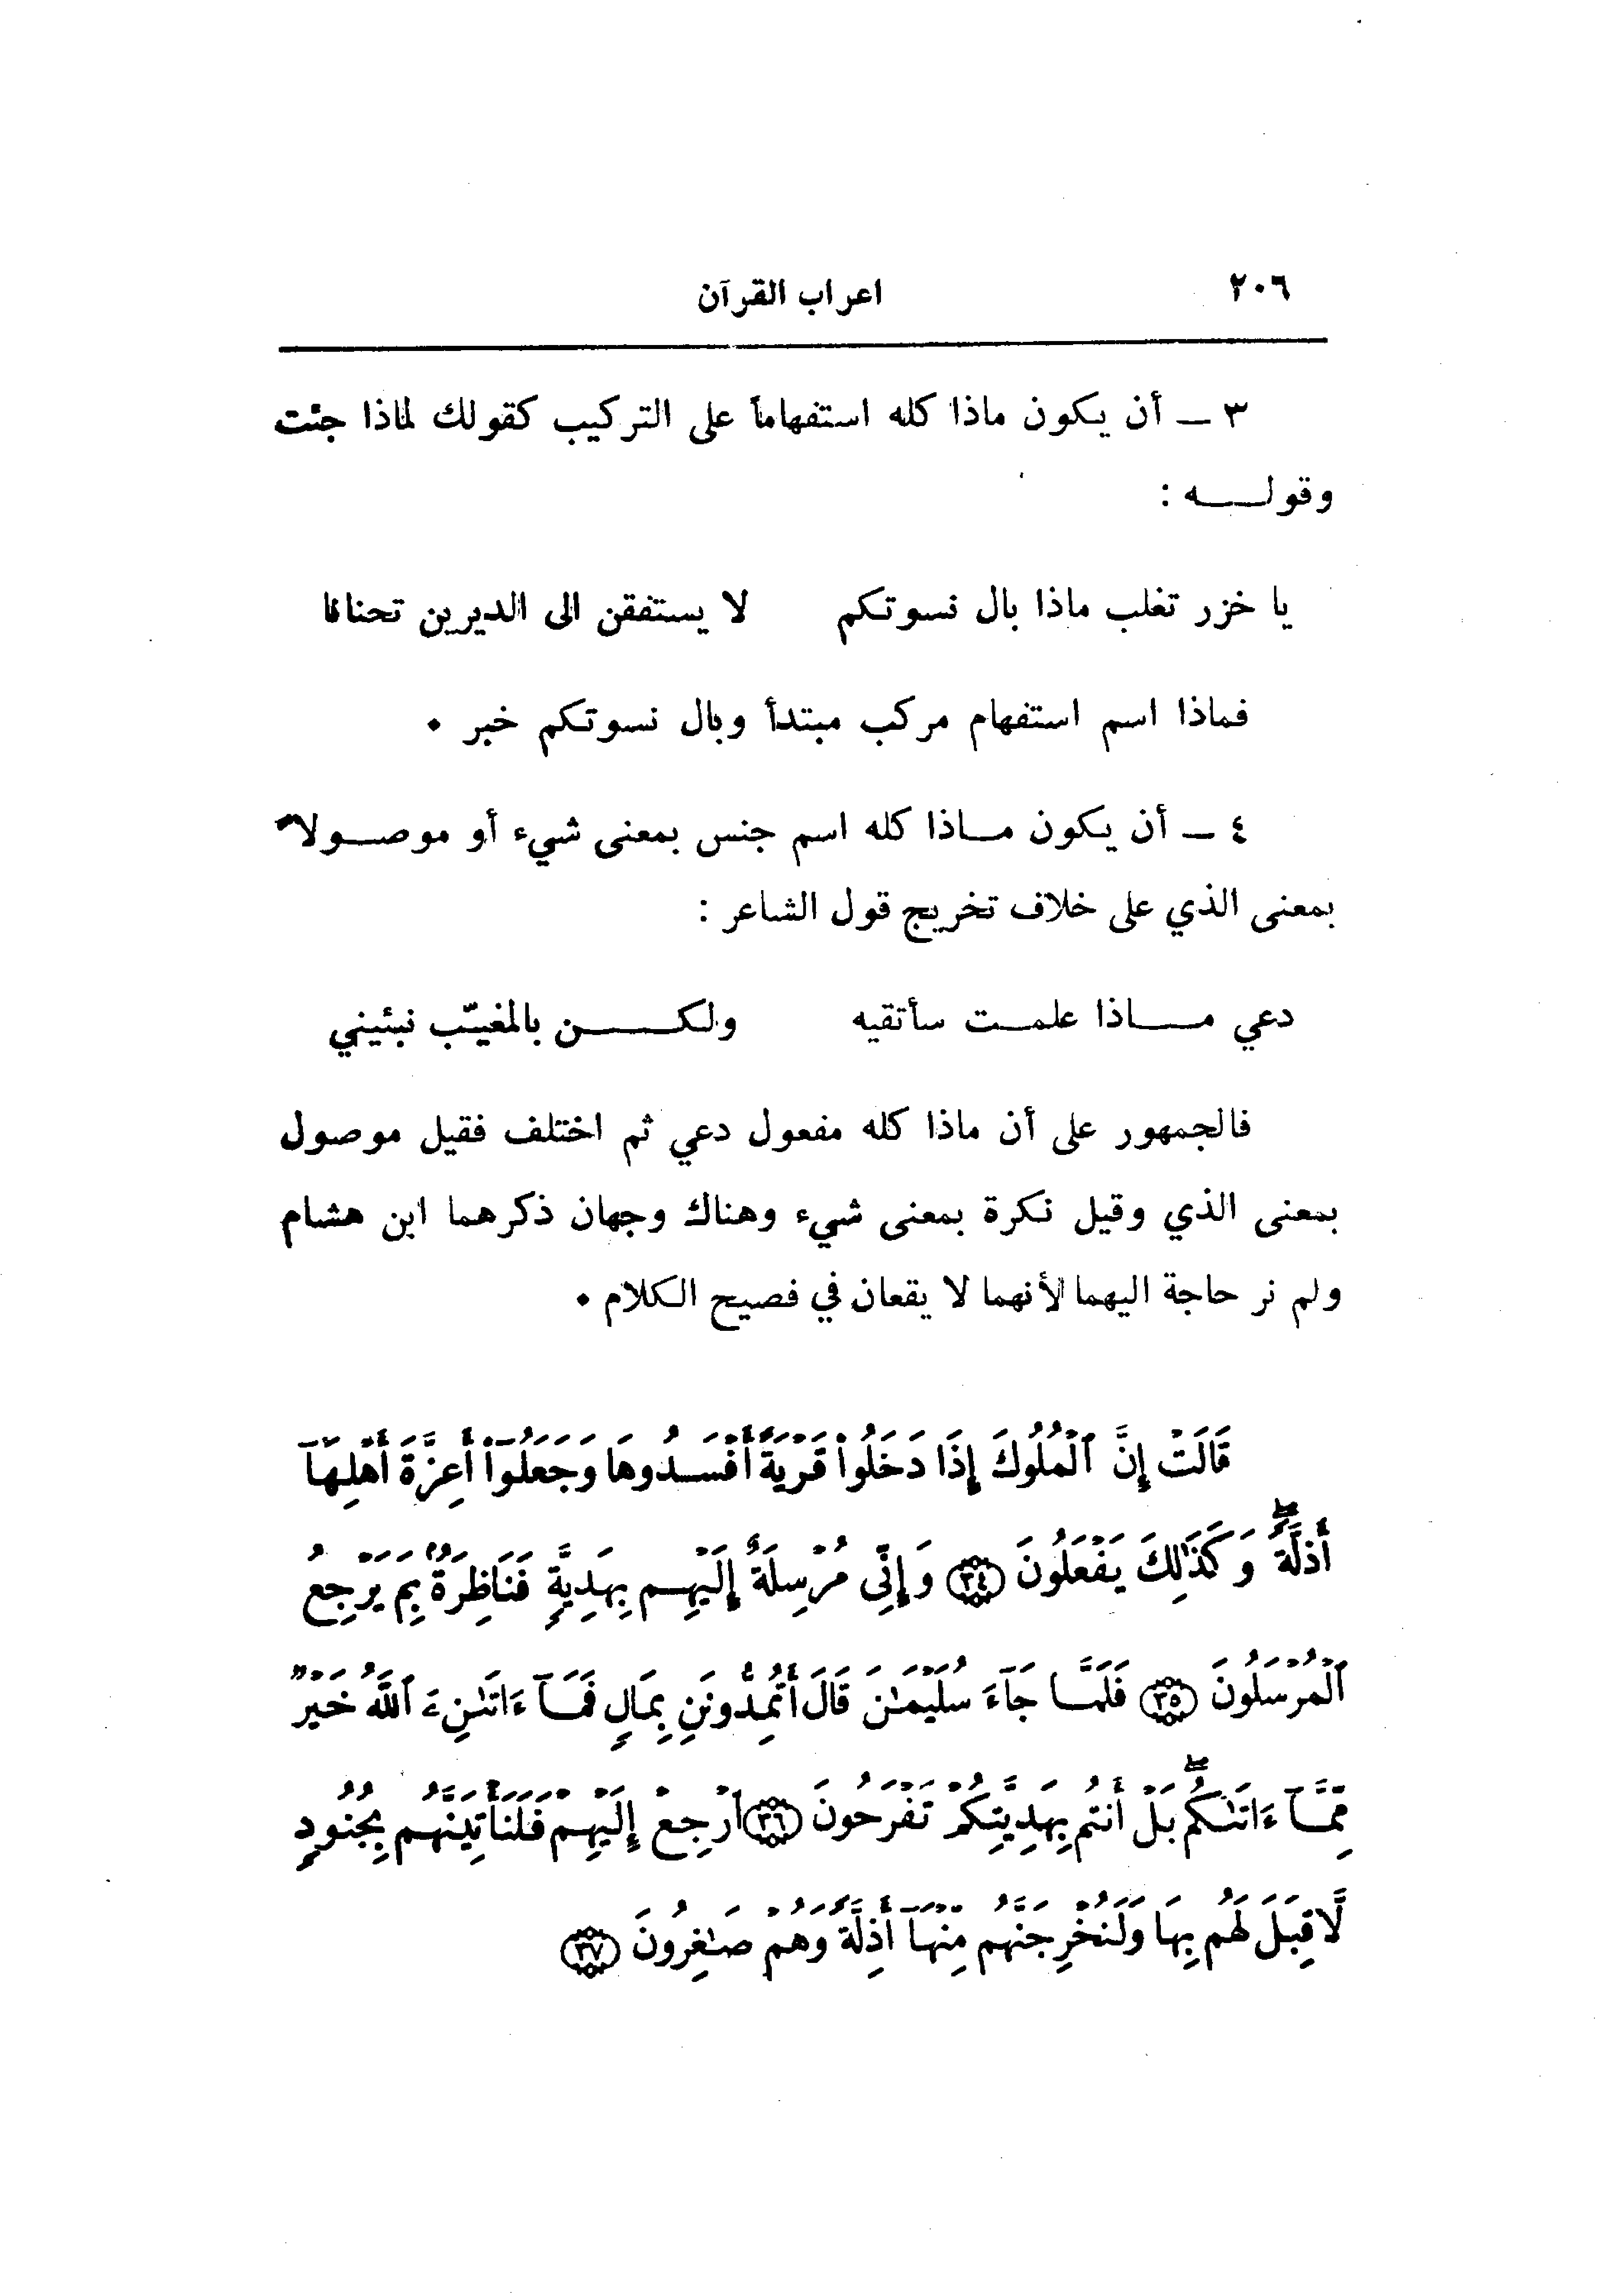 ٢٠٦ اعراب القرآن
٣ ــ أن يكون ماذا كله استفهاماً على التركيب كقولك لماذا جئت
وقولـــه :
يا خزر تغلب ماذا بال نسوتكم لا يستفقن الى الديرين تحنانا
فماذا اسم استفهام مركب مبتدأ وبال نسوتكم خبر ٠
٤ ــ أن يكون مــاذا كله اسم جنس بمعنى شيء أو موصــولاً
بمعنى الذي على خلاف تخريج قول الشاعر :
دعي مـــاذا علمــت سأتقيه ولكـــــن بالمغيّب نبئيني
فالجمهور على أن ماذا كله مفعول دعي ثم اختلف فقيل موصول
بمعنى الذي وقيل نكرة بمعنى شيء وهناك وجهان ذكرهما ابن هشام
ولم نر حاجة اليهما لأنهما لا يقعان في فصيح الكلام ٠
قَالَتْ إِنَّ ٱلْمُلُوكَ إِذَا دَخَلُواْ قَرْيَةً أَفْسَدُوهَا وَجَعَلُوٓاْ أَعِزَّةَ أَهْلِهَآ
أَذِلَّةً ۖ وَكَذَٰلِكَ يَفْعَلُونَ ﴿٣٤﴾ وَإِنِّى مُرْسِلَةٌ إِلَيْهِم بِهَدِيَّةٍ فَنَاظِرَةٌۢ بِمَ يَرْجِعُ
ٱلْمُرْسَلُونَ ﴿٣٥﴾ فَلَمَّا جَآءَ سُلَيْمَٰنَ قَالَ أَتُمِدُّونَنِ بِمَالٍ فَمَآ ءَاتَىٰنِۦَ ٱللَّهُ خَيْرٌ
مِّمَّآ ءَاتَىٰكُم ۖ بَلْ أَنتُم بِهَدِيَّتِكُمْ تَفْرَحُونَ ﴿٣٦﴾ ٱرْجِعْ إِلَيْهِمْ فَلَنَأْتِيَنَّهُم بِجُنُودٍ
لَّا قِبَلَ لَهُم بِهَا وَلَنُخْرِجَنَّهُم مِّنْهَآ أَذِلَّةً وَهُمْ صَٰغِرُونَ ﴿٣٧﴾